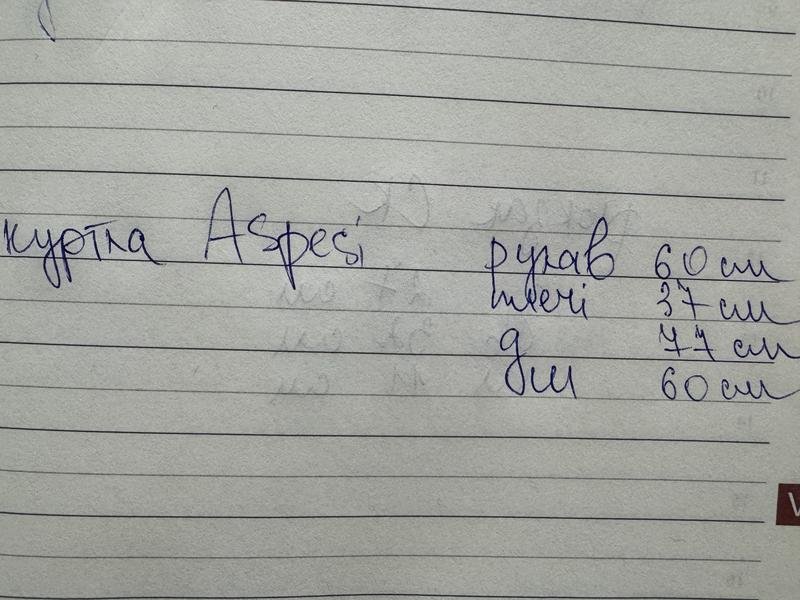 куртка Aspesi рукав 60 см
плечі 37 см
д 77 см
дш 60 см